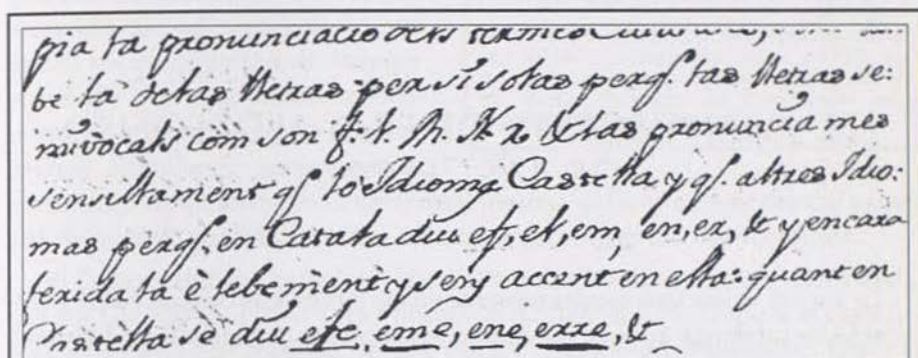 pia la pronunciacio dels termes
be la de las lletras per si solas perq̃. las lletras se:
mivocals com son f. l. m. N. r. &. las pronuncia mes
sensillament q̃ lo Idioma Castella y q̃ altres Idio:
mas perq̃. en Catala diu ef, el, em, en, er, & y encara
ferida la è lebement y sens accent en ella: quant en
Castella se diu efe, eme, ene, erre, &